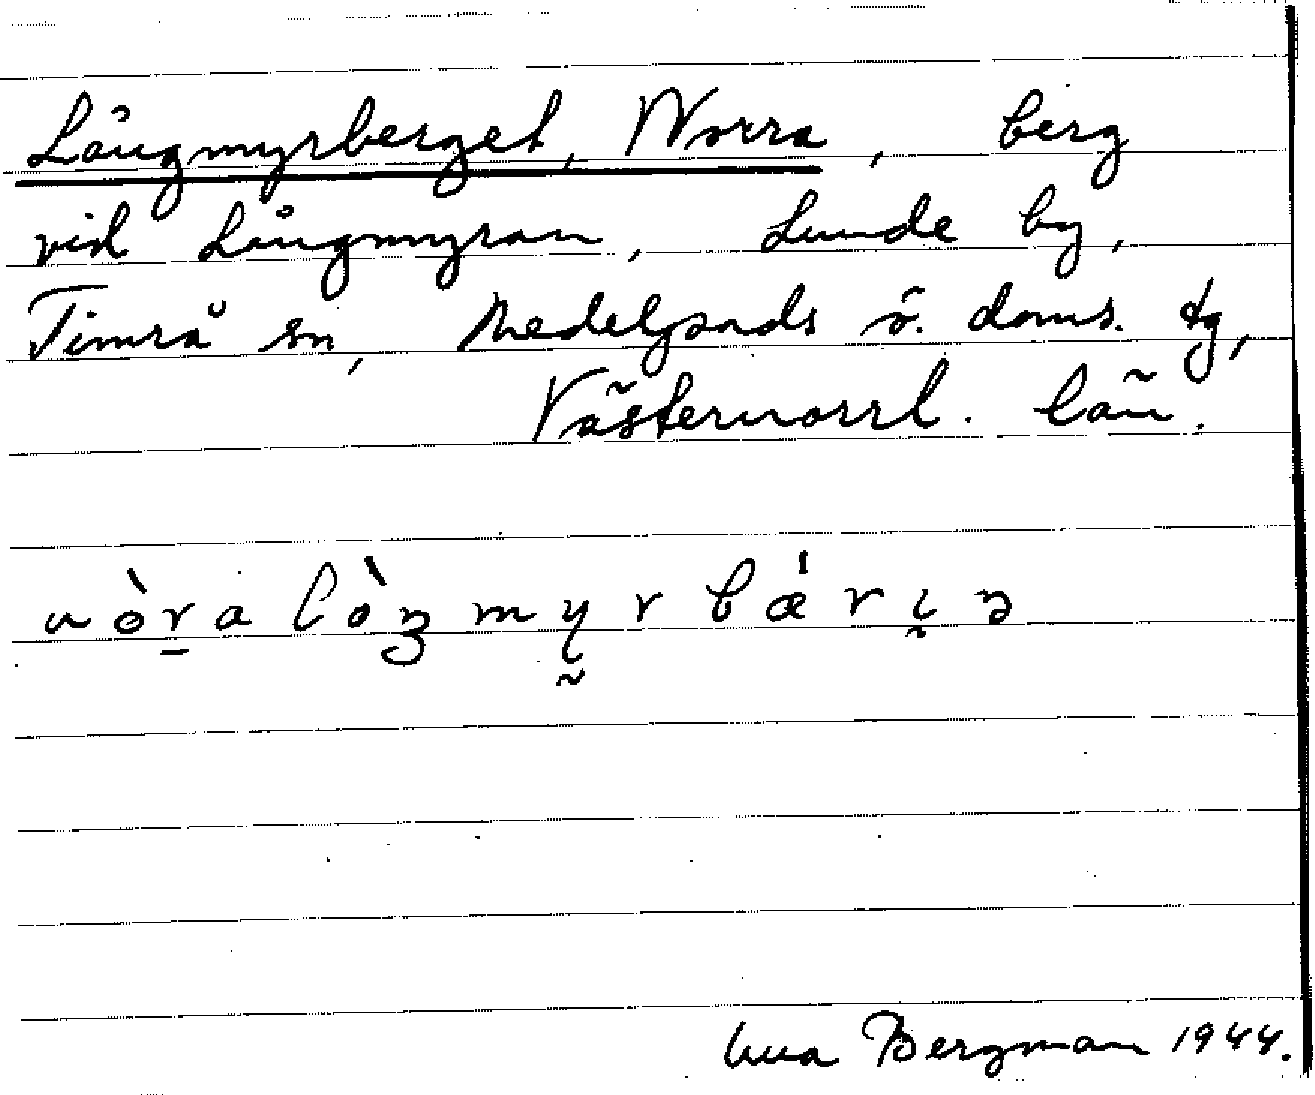 Långmyrberget, Norra, berg
vid Långmyran, Lunde by,
Timrå sn, Medelpads ö. doms. tg,
Västernorrl. län.
nòra lòŋmyrbǽrıɲ
Bergman 1944.